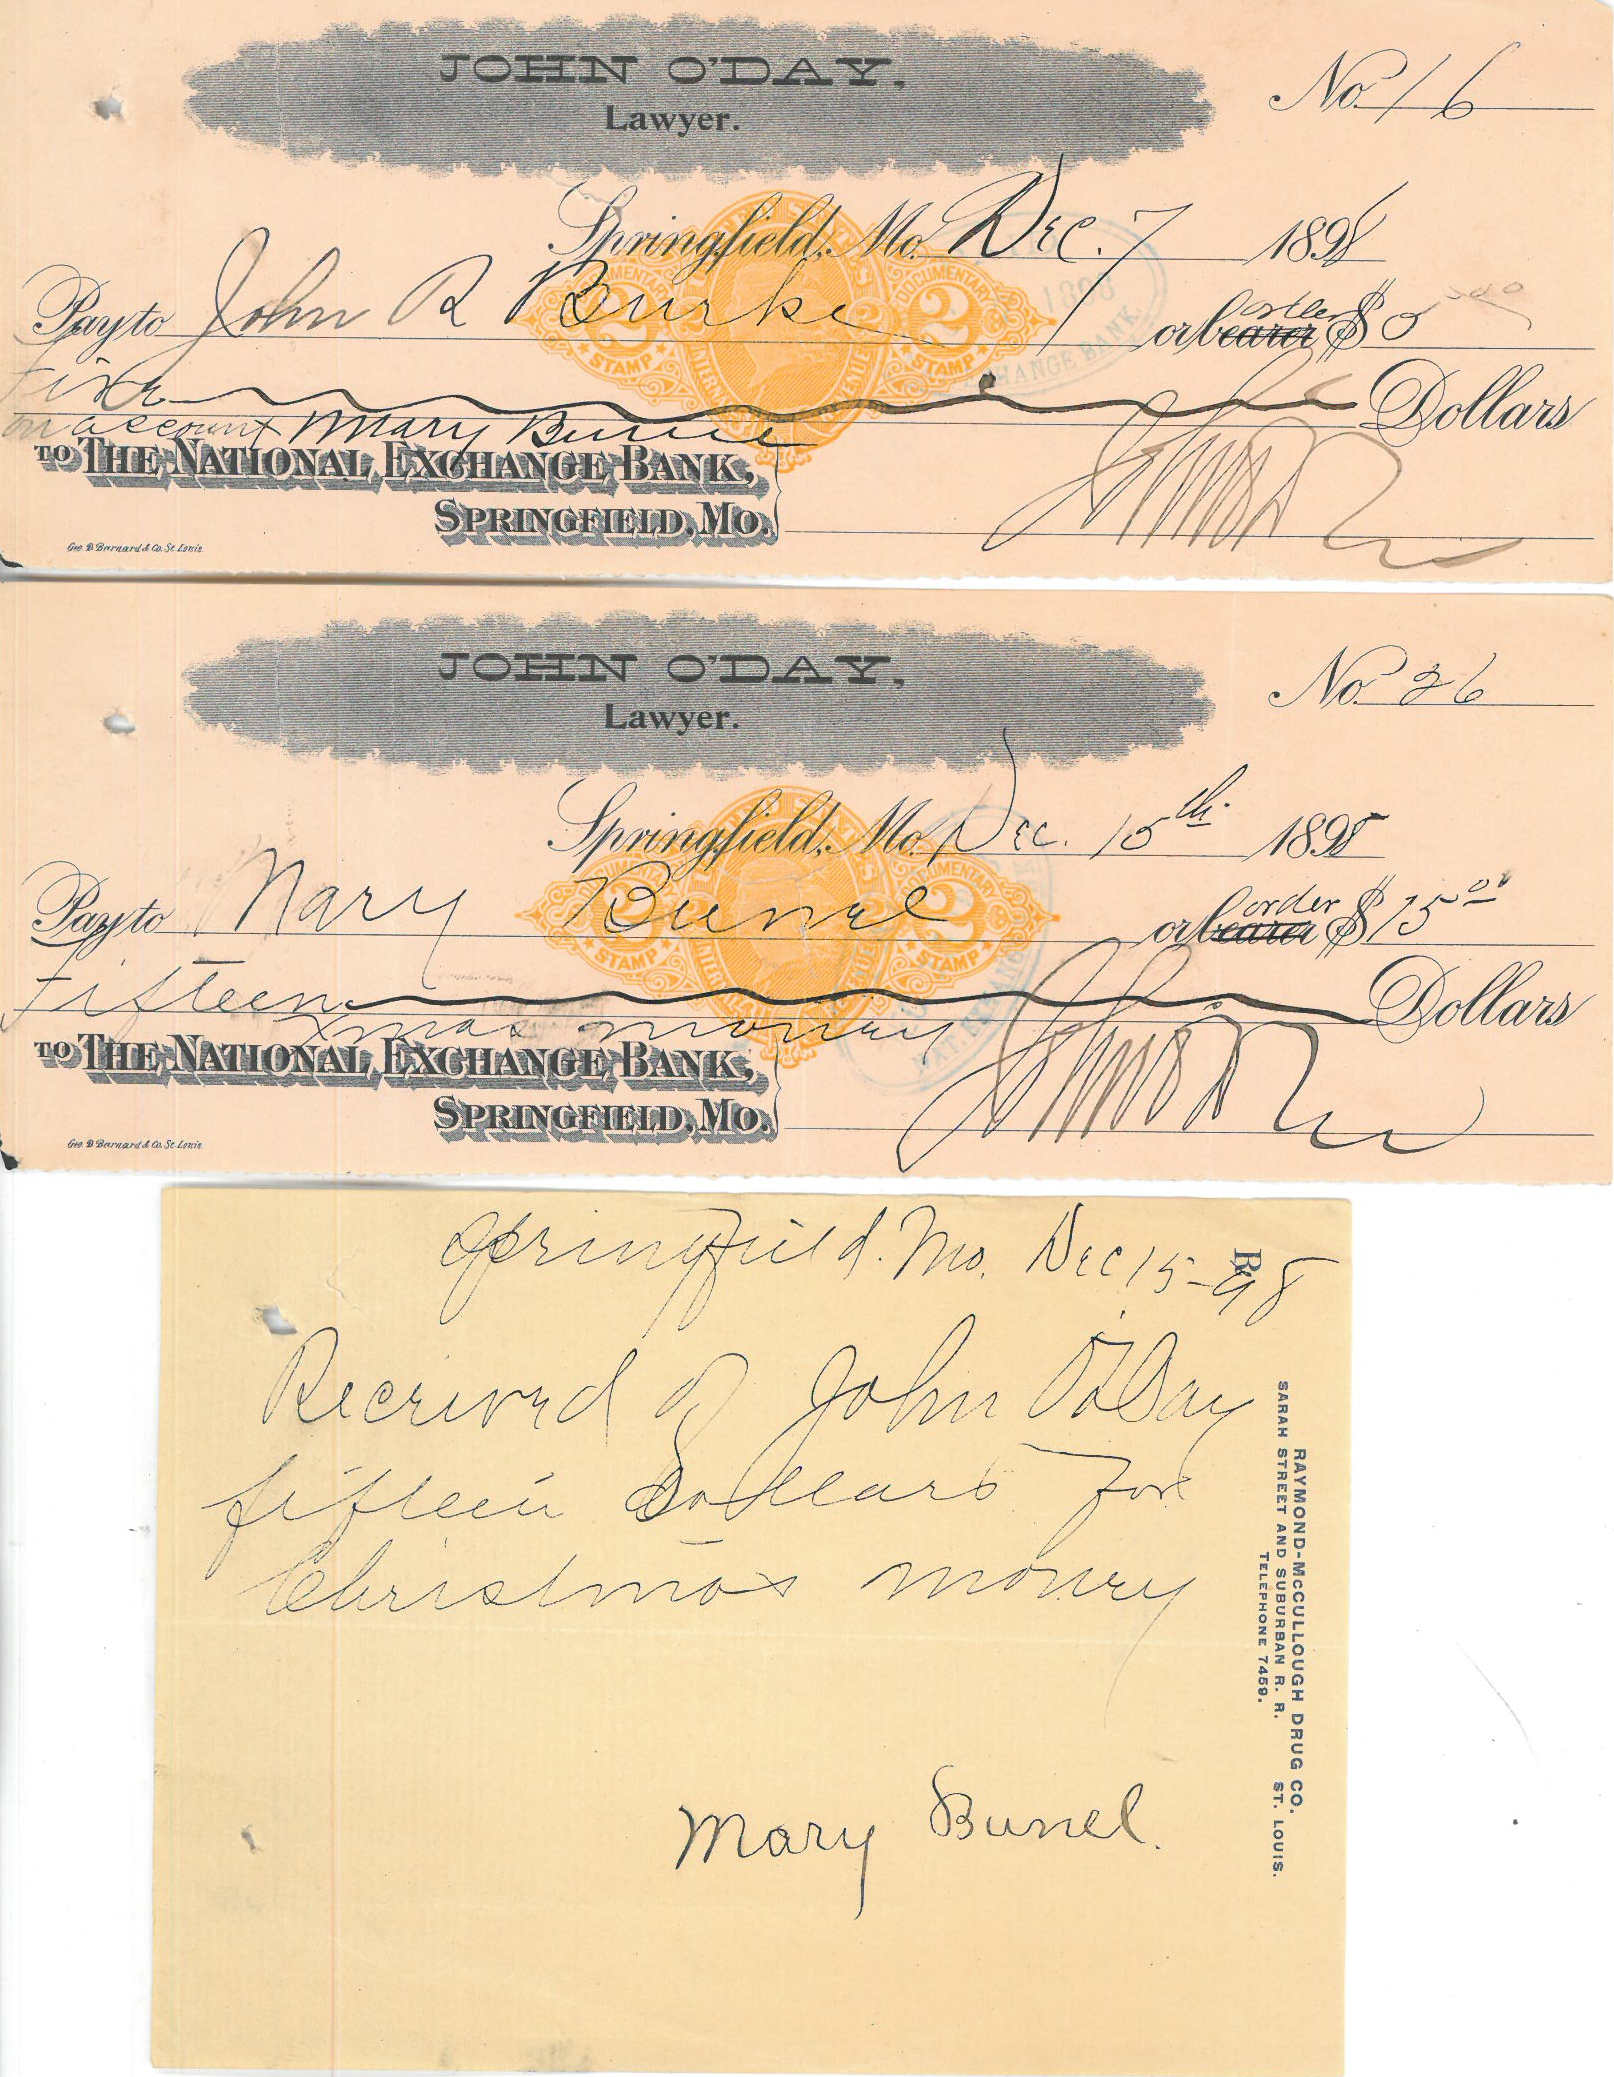 JOHN O'DAY,
Lawyer.
No. 16
Springfield, Mo. Dec. 7 1898
Pay to John R Burke or bearer order $5
Five Dollars
on account Mary Bunel
TO THE NATIONAL EXCHANGE BANK,
SPRINGFIELD, MO.
Geo. D. Barnard & Co. St. Louis
DOCUMENTARY
2
STAMP
DOCUMENTARY
2
STAMP
1898
EXCHANGE BANK
JOHN O'DAY,
Lawyer.
No. 26
Springfield, Mo. Dec. 15th 1898
Pay to Mary Bunel or bearer order $15 00
Fifteen Dollars
Xmas money
TO THE NATIONAL EXCHANGE BANK,
SPRINGFIELD, MO.
Geo. D. Barnard & Co. St. Louis
DOCUMENTARY
2
STAMP
DOCUMENTARY
2
STAMP
Springfield. Mo. Dec 15-98
Received of John O'Day
fifteen Dollars for
Christmas money
Mary Bunel.
RAYMOND-McCULLOUGH DRUG CO.
SARAH STREET AND SUBURBAN R. R. ST. LOUIS.
TELEPHONE 7459.